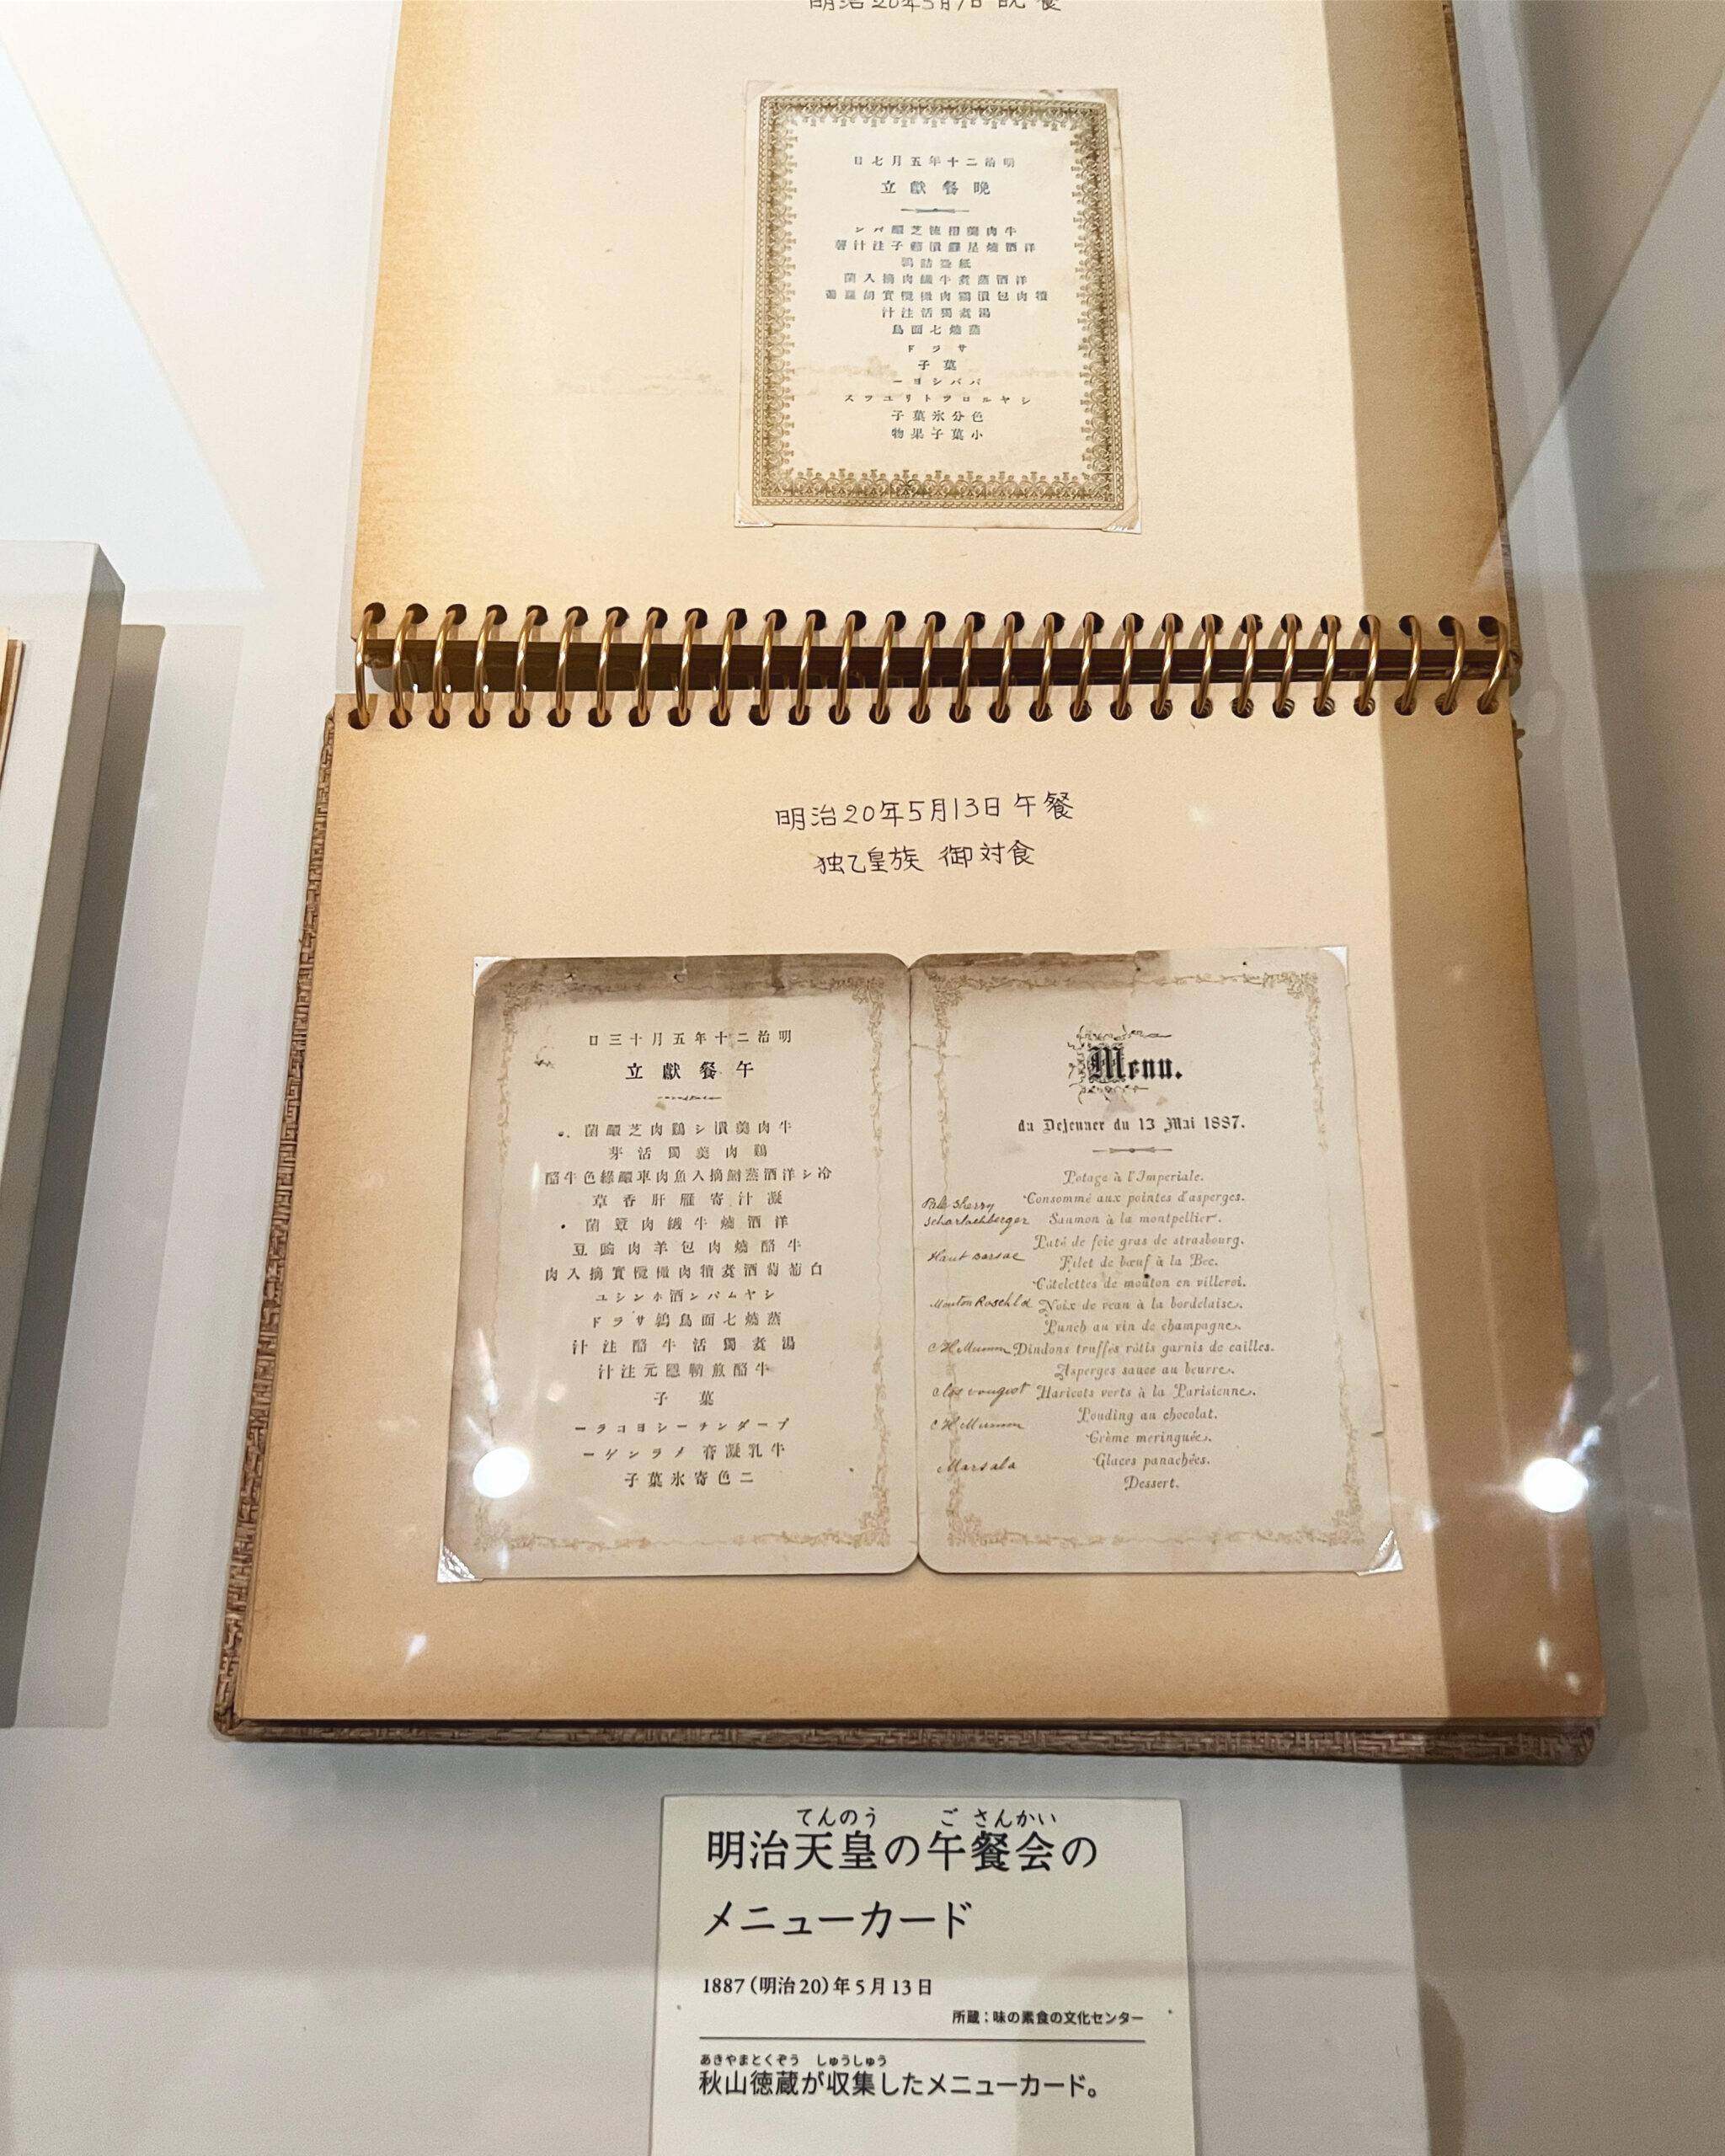 明治20年5月7日 晩餐
明治二十年五月七日
晩餐獻立
牛肉羹
洋酒燒
洋酒蒸煮牛纎肉摘入菌
湯煮獨活注汁
蒸燒七面鳥
サラド
菓子
色分氷菓子
小菓子果物
明治20年5月13日 午餐
独乙皇族 御対食
明治二十年五月十三日
午餐獻立
牛肉羹漬シ鷄肉芝
鷄肉羹獨活芽
冷シ洋酒蒸 摘入魚肉車 綠色牛酪
凝汁寄雁肝香草
洋酒燒牛纎肉 菌
牛酪燒肉包羊肉豌豆
白葡萄酒煮犢肉橄欖實摘入肉
シヤムパン酒ホンシユ
蒸燒七面鳥鶉サラド
湯煮獨活牛酪注汁
牛酪煎鞘隱元注汁
菓子
プーダンチーシヨコラー
牛乳凝膏メランゲー
二色寄氷菓子
Menu.
du Dejeuner du 13 Mai 1887.
Potage à l'Imperiale.
Consommé aux pointes d'asperges.
Pale Sherry
Scharlachberger Saumon à la montpellier.
Paté de foie gras de strasbourg.
Haut Barsac Filet de bœuf à la Bec.
Côtelettes de mouton en villeroi.
Mouton Noix de veau à la bordelaise.
Punch au vin de champagne.
Mumm Dindons truffés rôtis garnis de cailles.
Asperges sauce au beurre.
Clos vougeot Haricots verts à la Parisienne.
Pouding au chocolat.
Mumm
Crème meringuée.
Marsala Glaces panachées.
Dessert.
てんのう ご さんかい
明治天皇の午餐会の
メニューカード
1887(明治20)年5月13日
所蔵:味の素食の文化センター
あきやまとくぞう しゅうしゅう
秋山徳蔵が収集したメニューカード。